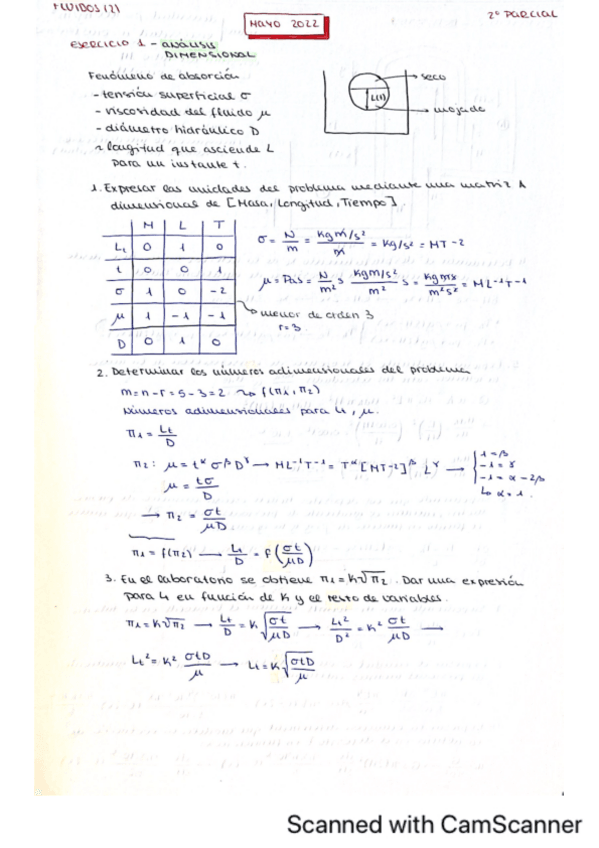 FLUIDOS (2)
MAYO 2022
2º PARCIAL
EJERCICIO 1 - ANÁLISIS DIMENSIONAL
Fenómeno de absorción
- tensión superficial σ
- viscosidad del fluido μ
- diámetro hidráulico D
~ longitud que asciende L
para un instante t.
seco
L(t)
mojado
1. Expresar las unidades del problema mediante una matriz A
dimensional de [Masa, Longitud, Tiempo].
M L T
Lt 0 1 0
t 0 0 1
σ 1 0 -2
μ 1 -1 -1
D 0 1 0
σ = N/m = (Kg m/s²)/m = Kg/s² = MT-2
μ = Pa·s = N/m² s (Kg m/s²)/m² · s = Kg m s/m² s² = ML-1T-1
menor de orden 3
r=3
2. Determinar los números adimensionales del problema
m = n-r = 5-3 = 2 ~> f(π1, π2)
Números adimensionales para Lt, μ.
π1 = Lt/D
π2: μ = t^α σ^β D^γ → ML-1T-1 = T^α [MT-2]^β L^γ → { 1=β
-1=γ
-1=α-2β
↳ α=1.
μ = tσ/D
→ π2 = σt/μD
π1 = f(π2) → Lt/D = f(σt/μD)
3. En el laboratorio se obtiene π1 = K√π2. Dar una expresión
para Lt en función de K y el resto de variables.
π1 = K√π2 → Lt/D = K √(σt/μD) → Lt²/D² = K² σt/μD →
Lt² = K² σtD/μ → Lt = K √(σtD/μ)
Scanned with CamScanner